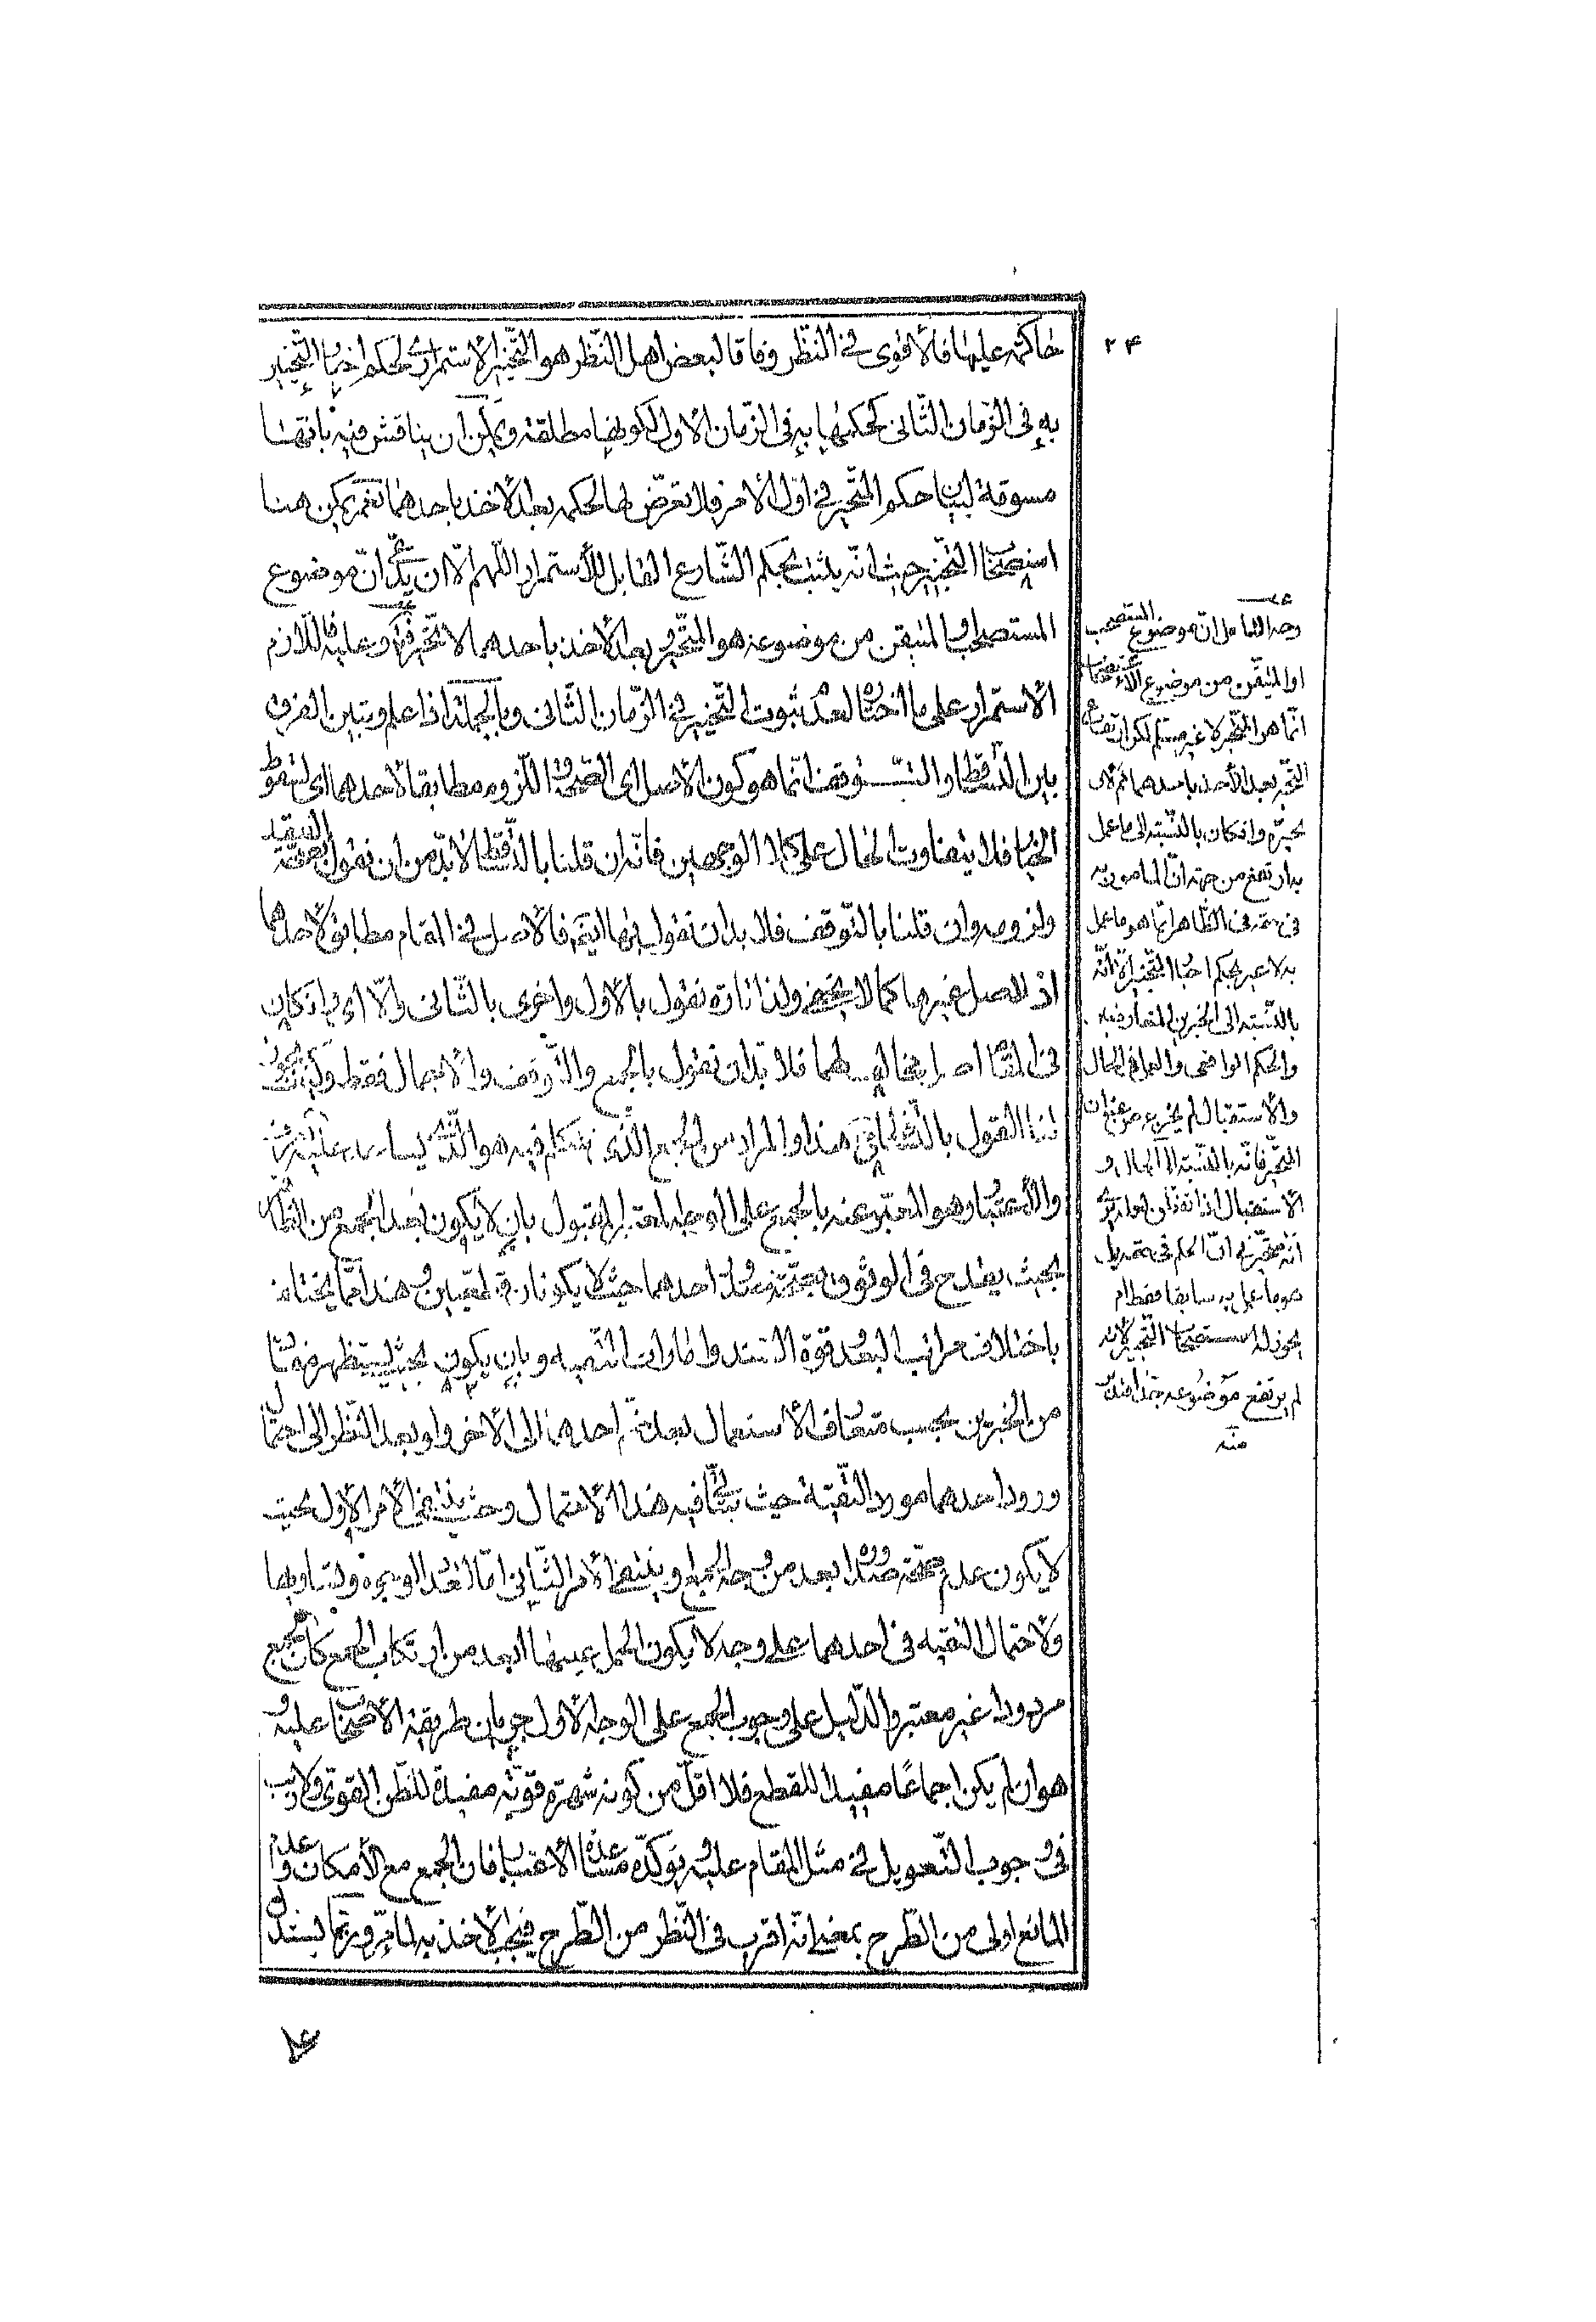 حاكمة عليها فالأقوى في النظر وفاقا لبعض اهل النظر هو التخيير الاستمراري لحكم اخبار التخيير
به في الزمان الثاني كحكمها به في الزمان الاول لكونها مطلقة ويمكن ان يناقش فيه بانها
مسوقة لبيان حكم المتحير في اول الامر فلا تعرض لها لحكمه بعد الاخذ باحدهما نعم يمكن هنا
استصحاب التخيير حيث انه يثبت بحكم الشارع القابل للاستمرار اللهم الا ان يدعى ان موضوع
المستصحب او المتيقن من موضوعه هو المتحير وبعد الاخذ باحدهما لا تحير فتأمل وعليه فاللازم
الاستمرار على ما اختاره لعدم ثبوت التخيير في الزمان الثاني وبالجملة اذا علم وتبين الفرق
بين التساقط والتوقف انما هو كون الاصل اى الصحة واللزوم مطابقا لأحدهما اى لسقوط
الخيار فلا يتفاوت الحال على كلا الوجهين فانه ان قلنا بالتساقط لا بد من ان نقول بصحة العقد
ولزومه وان قلنا بالتوقف فلا بد ان نقول بهما ايضا فالاصل في المقام مطابق لاحدهما
اذ الاصل غيرها كما لا يخفى ولذا تارة نقول بالاول واخرى بالثاني والا اى ان كان
في المقام اصل مخالف لهما فلا بد ان نقول بالجمع والتوقف والاجمال فقط
لنا القول بالتساقط هذا والمراد من الجمع الذي نتكلم فيه هو الذي يساعد عليه
والاعتبار وهو المعبر عنه بالجمع على الوجه المعتبر المقبول بان لا يكون بعد الجمع من الظاهر
بحيث يقدح في الوثوق بحجية احدهما حيث لا يكونان قطعيين وهذا مما يختلف
باختلاف مراتب البعد وقوة السند وامارات التقيه وبان يكون بحيث يستظهر
من الخبرين بحسب متعارف الاستعمال بعد ضم احدهما الى الاخر ولو بعد النظر الى احتمال
ورود احدهما مورد التقية حيث يتأتى فيه هذا الاحتمال وحيث ينتفى الامر الاول بحيث
لا يكون عدم صحة صدوره ابعد من وجه الجمع او ينتفى الامر الثاني اما لتعدد الوجوه وتساويها
ولاحتمال التقيه في احدهما على وجه لا يكون الحمل عليها ابعد من ارتكاب الجمع كان الجمع
مردودا غير معتبر والدليل على وجوب الجمع على الوجه الاول جريان طريقة الاصحاب عليه و
هو ان لم يكن اجماعا مفيدا للقطع فلا اقل من كونه شهرة قوية مفيدة للظن القوى ولا ريب
في وجوب التعويل في مثل المقام عليه ويؤكده مساعدة الاعتبار فان الجمع مع الامكان وعدم
المانع اولى من الطرح بمعنى انه اقرب في النظر من الطرح فيجب الاخذ به لما مر وربما يستدل
٢٤
وجه التأمل ان موضوع المستصحب
او المتيقن من موضوع الاستصحاب
انما هو المتحير لا غير مسلم لكن ارتفاع
التحير بعد الاخذ باحدهما ثم لان
تحيره وان كان بالنسبة الى ما عمل
به ارتفع من جهة ان المأمور به
في حقه في الظاهر انما هو ما عمل
به لا غير بحكم اخبار التخيير الا انه
بالنسبة الى الخبرين المتعارضين
والحكم الواقعي والعمل في الحال
والاستقبال لم يخرج عن عنوان
المتحير فانه بالنسبة الى الحال و
الاستقبال
انه متحير في ان الحكم في حقه هل
هو ما عمل به سابقا فقط ام
يجوز له استصحاب التخيير لانه
لم يرتفع موضوعه بعد
منه